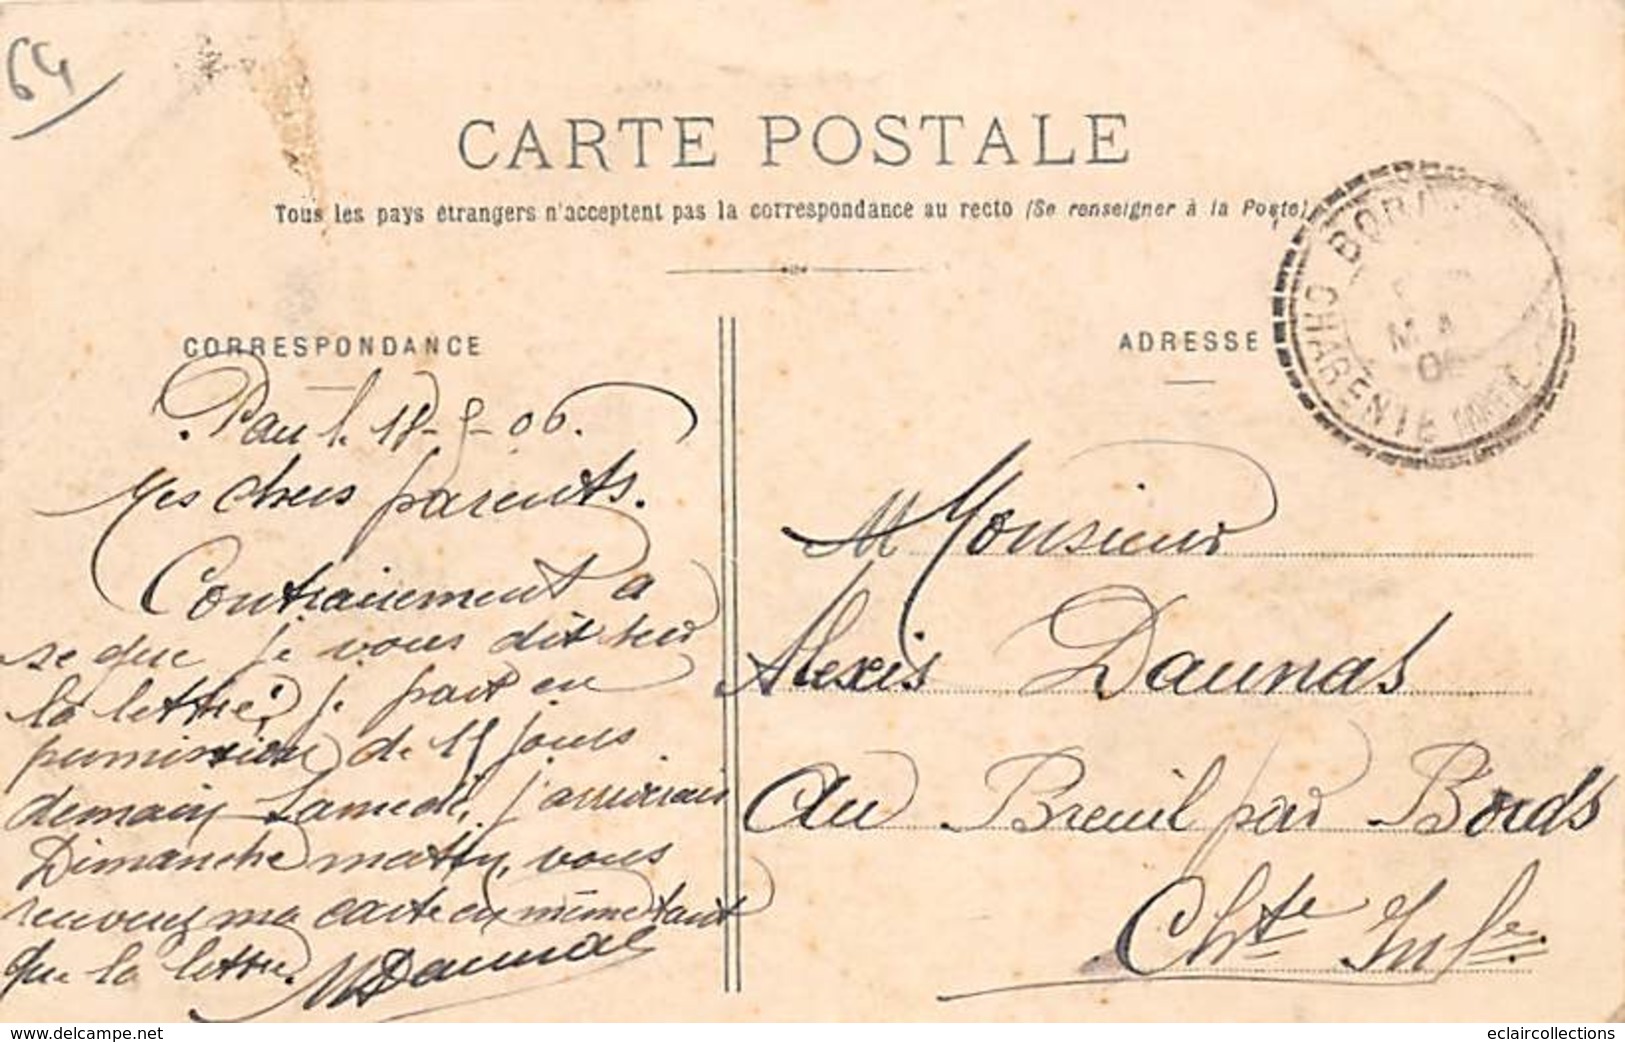 64
CARTE POSTALE
Tous les pays étrangers n'acceptent pas la correspondance au recto (Se renseigner à la Poste)
CORRESPONDANCE
Pau l. 18-5-06.
Mes chers parents.
Contrairement a
se que je vous dit sur
la lettre, je part en
permission de 15 jours
demain Samedi, j'arriverais
Dimanche matin, vous
recevrez ma carte en même tant
que la lettre. MDaunas
ADRESSE
BORDS
CHARENTE INFRE
MAI
06
M Monsieur
Alexis Daunas
Au Breuil par Bords
Chte Infre.
www.delcampe.net
eclaircollections